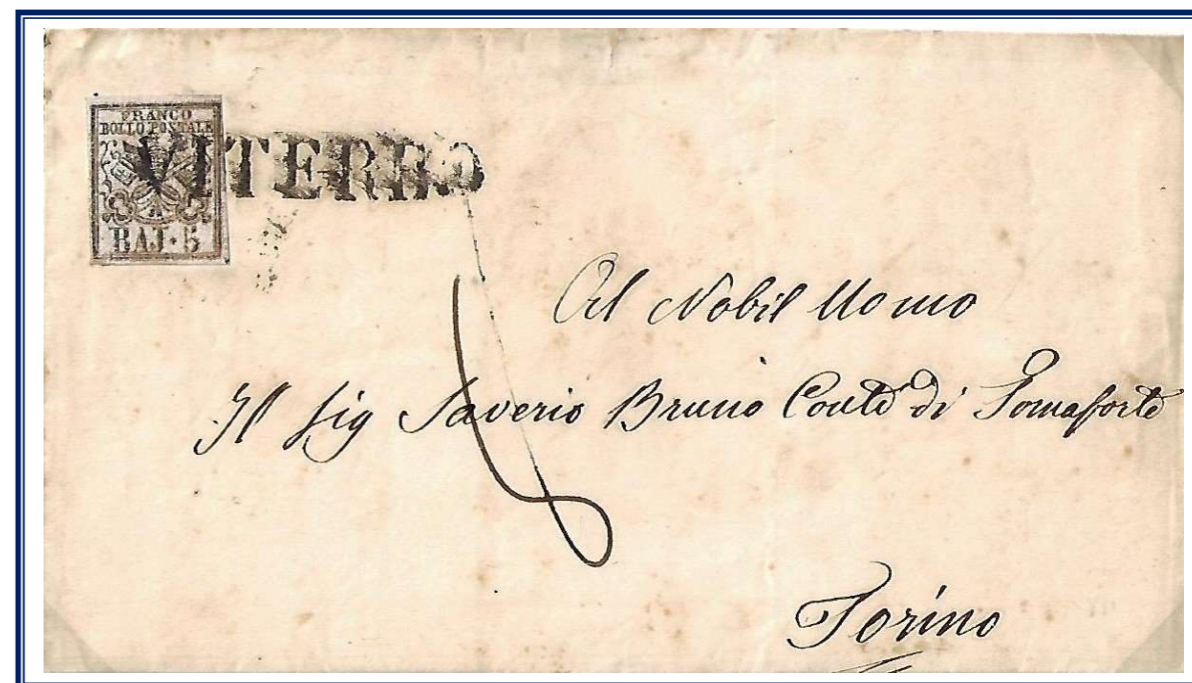 FRANCO
BOLLO POSTALE
BAJ · 5
VITERBO
Al Nobil Uomo
Il Sig Saverio Bruno Conte di Tornaforte
Torino